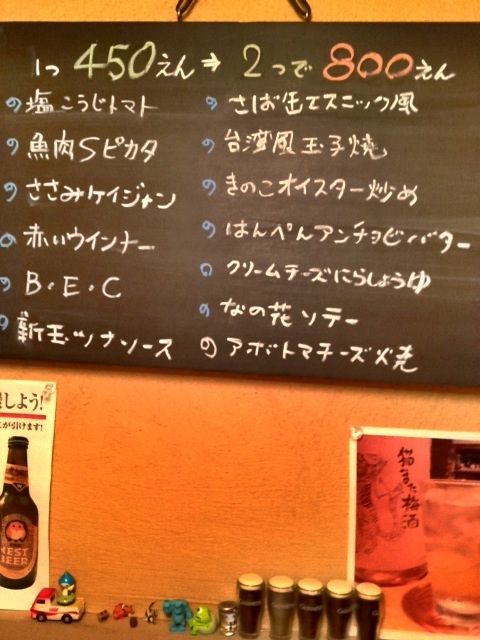 1つ450えん→2つで800えん
塩こうじトマト
魚肉Sピカタ
ささみケイジャン
赤いウインナー
B・E・C
新玉ツナソース
さば缶エスニック風
台湾風玉子焼
きのこオイスター炒め
はんぺんアンチョビバター
クリームチーズにらしょうゆ
なの花ソテー
アボトマチーズ焼
しよう!
が引けます!
NEST
BEER
梅酒